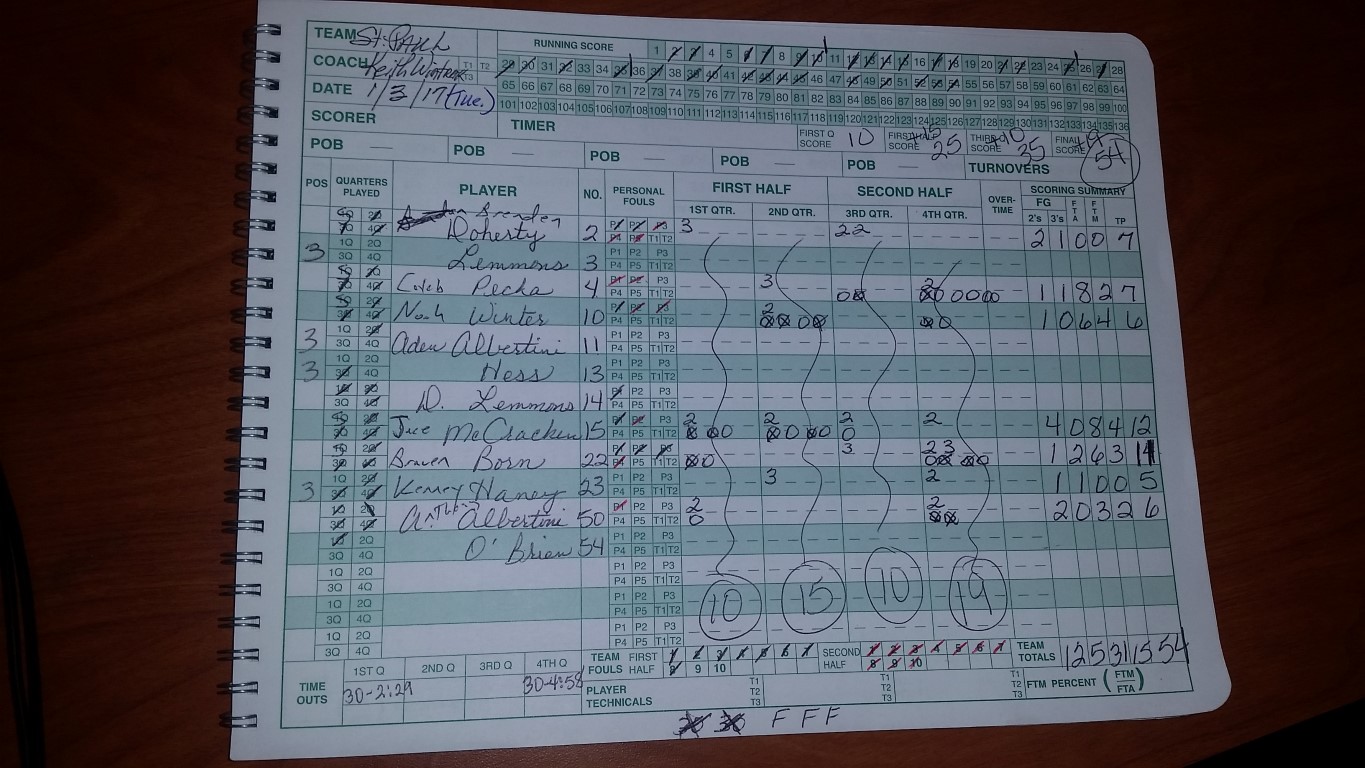 TEAM St. Paul RUNNING SCORE 1 2 3 4 5 6 7 8 9 10 11 12 13 14 15 16 17 18 19 20 21 22 23 24 25 26 27 28
COACH Keith T1 T2 T3 29 30 31 32 33 34 35 36 37 38 39 40 41 42 43 44 45 46 47 48 49 50 51 52 53 54 55 56 57 58 59 60 61 62 63 64
DATE 1/3/17 (Tue.) 65 66 67 68 69 70 71 72 73 74 75 76 77 78 79 80 81 82 83 84 85 86 87 88 89 90 91 92 93 94 95 96 97 98 99 100
101 102 103 104 105 106 107 108 109 110 111 112 113 114 115 116 117 118 119 120 121 122 123 124 125 126 127 128 129 130 131 132 133 134 135 136
SCORER TIMER FIRST Q SCORE 10 FIRST HALF SCORE +15 25 THIRD Q SCORE +10 35 FINAL SCORE +19 54
POB — POB — POB — POB — POB — TURNOVERS
POS QUARTERS PLAYED PLAYER NO. PERSONAL FOULS FIRST HALF SECOND HALF OVER-TIME SCORING SUMMARY
1ST QTR. 2ND QTR. 3RD QTR. 4TH QTR. FG 2's 3's FTA FTM TP
1Q 2Q 3Q 4Q Brenden Doherty 2 P1 P2 P3 P4 P5 T1 T2 3 2 2 2 1 0 0 7
3 1Q 2Q 3Q 4Q Lemmons 3 P1 P2 P3 P4 P5 T1 T2
1Q 2Q 3Q 4Q Caleb Pecka 4 P1 P2 P3 P4 P5 T1 T2 3 0 0 2 0 0 0 0 0 0 1 1 8 2 7
1Q 2Q 3Q 4Q Noah Winter 10 P1 P2 P3 P4 P5 T1 T2 2 0 0 0 0 0 0 1 0 6 4 6
3 1Q 2Q 3Q 4Q Aden Albertini 11 P1 P2 P3 P4 P5 T1 T2
3 1Q 2Q 3Q 4Q Hess 13 P1 P2 P3 P4 P5 T1 T2
1Q 2Q 3Q 4Q D. Lemmons 14 P1 P2 P3 P4 P5 T1 T2
1Q 2Q 3Q 4Q McCracken 15 P1 P2 P3 P4 P5 T1 T2 2 0 0 0 2 0 0 0 0 2 0 2 4 0 8 4 12
1Q 2Q 3Q 4Q Braven Born 22 P1 P2 P3 P4 P5 T1 T2 0 0 3 2 3 0 0 0 0 1 2 6 3 11
3 1Q 2Q 3Q 4Q Kenney Haney 23 P1 P2 P3 P4 P5 T1 T2 3 2 1 1 0 0 5
1Q 2Q 3Q 4Q Albertini 50 P1 P2 P3 P4 P5 T1 T2 2 0 2 0 0 2 0 3 2 6
1Q 2Q 3Q 4Q O'Brien 54 P1 P2 P3 P4 P5 T1 T2
1Q 2Q 3Q 4Q P1 P2 P3 P4 P5 T1 T2
1Q 2Q 3Q 4Q P1 P2 P3 P4 P5 T1 T2 10 15 10 19
1Q 2Q 3Q 4Q P1 P2 P3 P4 P5 T1 T2
TIME OUTS 1ST Q 2ND Q 3RD Q 4TH Q TEAM FOULS FIRST HALF 1 2 3 4 5 6 7 8 9 10 SECOND HALF 1 2 3 4 5 6 7 8 9 10 TEAM TOTALS 12 5 31 15 54
30-2:29 30-4:58 PLAYER TECHNICALS T1 T2 T3 T1 T2 T3 T1 T2 T3 FTM PERCENT (FTM/FTA)
30 30 F F F